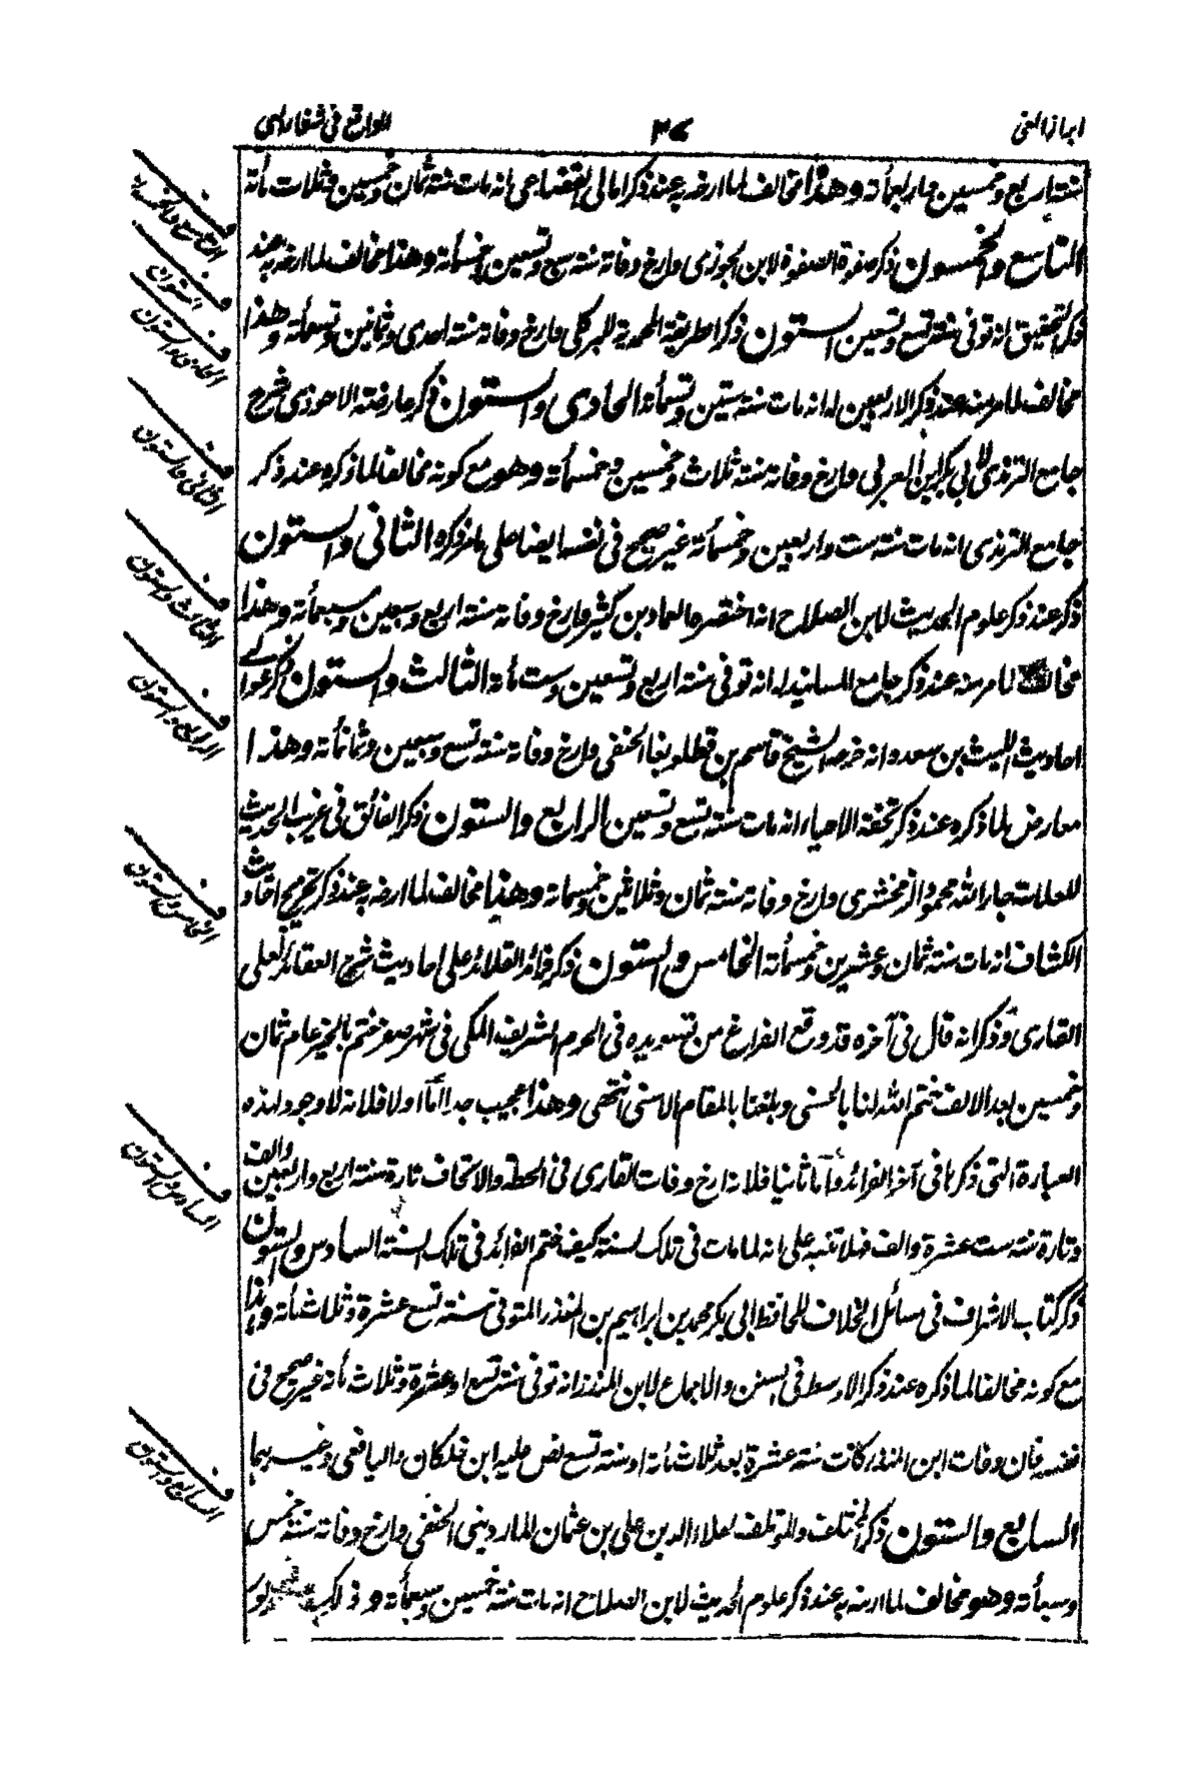 ابراز الغى
٣٧
الواقع فى شفاء العى
سنة اربع وخمسين واربعمأة وهذا مخالف لما ارخه به عند ذكر امالى القضاعى بانه مات سنة ثمان وخمسين وثلاث مأة
التاسع والخمسون ذكر صفوة الصفوة لابن الجوزى وارخ وفاته سنة سبع وتسعين وخمسمأة وهذا مخالف لما ارخه به عند
ذكر التحقيق انه توفى سنة تسع وتسعين الستون ذكر الطريقة المحمدية للبركلى وارخ وفاته سنة احدى وثمانين وتسعمأة وهذا
مخالف لما مر منه عند ذكر الاربعين له انه مات سنة ستين وتسعمأة الحادى والستون ذكر عارضة الاحوذى شرح
جامع الترمذى لابى بكر ابن العربى وارخ وفاته سنة ثلاث وخمسين وخمسمأة وهو مع كونه مخالفا لما ذكره عند ذكر
جامع الترمذى انه مات سنة ست واربعين وخمسمأة غير صحيح فى نفسه ايضا على ما مر ذكره الثانى والستون
ذكر عند ذكر علوم الحديث لابن الصلاح انه اختصره العماد بن كثير وارخ وفاته سنة اربع وسبعين وسبعمأة وهذا
مخالف لما مر منه عند ذكر جامع المسانيد له انه توفى سنة اربع وتسعين وست مأة الثالث والستون ذكر عوالى
احاديث الليث بن سعد وانه خرجه الشيخ قاسم بن قطلوبغا الحنفى وارخ وفاته سنة تسع وسبعين وثمانمأة وهذا
معارض لما ذكره عند ذكر تحفة الاحياء انه مات سنة تسع وتسعين الرابع والستون ذكر الفائق فى غريب الحديث
للعلامة جار الله محمود الزمخشرى وارخ وفاته سنة ثمان وثلاثين وخمسمأة وهذا مخالف لما ارخه به عند ذكر تخريج احاديث
الكشاف انه مات سنة ثمان وعشرين وخمسمأة الخامس والستون ذكر فرائد القلائد على احاديث شرح العقائد لعلى
القارى وذكر انه قال فى آخره قد وقع الفراغ من تسويده فى الحرم الشريف المكى فى شهر صفر ختم بالخير عام ثمان
وخمسين بعد الالف ختم الله لنا بالحسنى وبلغنا بالمقام الاسنى انتهى وهذا عجيب جدا اما اولا فلانه لا وجود لهذه
العبارة التى ذكرها فى آخر الفرائد واما ثانيا فلانه ارخ وفات القارى فى الحطة والاتحاف تارة سنة اربع واربعين والف
وتارة سنة ست عشرة والف فهلا تنبه على انه لما مات فى تلك السنة كيف ختم الفرائد فى تلك السنة السادس والستون
ذكر كتاب الاشراف فى مسائل الخلاف للحافظ ابى بكر محمد بن ابراهيم بن المنذر المتوفى سنة تسع عشرة وثلاث مأة وهذا
مع كونه مخالفا لما ذكره عند ذكر الاوسط فى السنن والاجماع لابن المنذر انه توفى سنة تسع او عشرة وثلاث مأة غير صحيح فى
نفسه فان وفات ابن المنذر كانت سنة عشرة بعد ثلاث مأة او سنة تسع نص عليه ابن خلكان واليافعى وغيرهما
السابع والستون ذكر المختلف والمؤتلف لعلاء الدين على بن عثمان الماردينى الحنفى وارخ وفاته سنة خمس
وسبعمأة وهو مخالف لما ارخه به عند ذكر علوم الحديث لابن الصلاح انه مات سنة خمسين وسبعمأة و
التاسع والخمسون
الستون
الحادى والستون
الثانى والستون
الثالث والستون
الرابع والستون
الخامس والستون
السادس والستون
السابع والستون